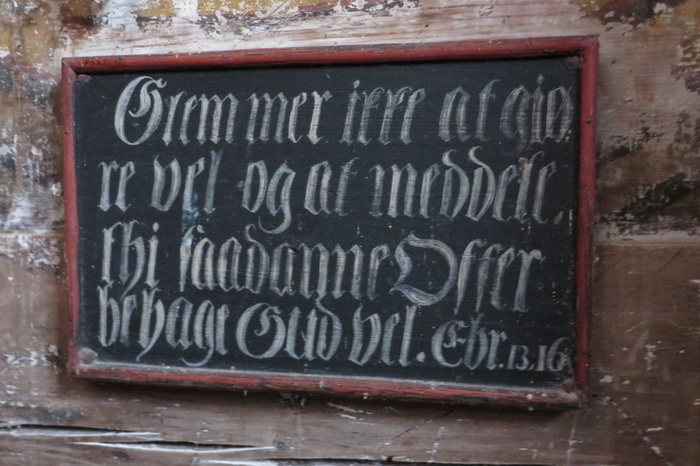 Glemmer ikke at giø
re vel og at meddele.
thi saadanne Offer
behage Gud vel. Ebr. 13.16